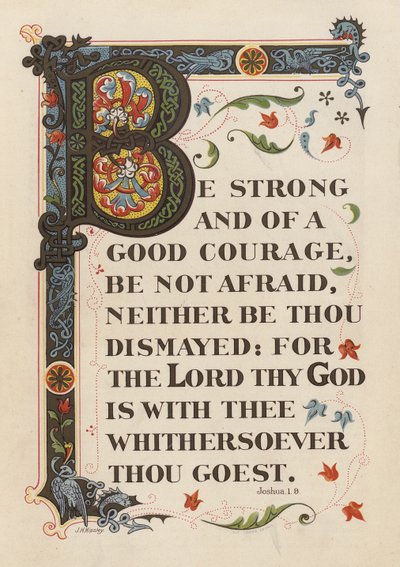 BE STRONG
AND OF A
GOOD COURAGE,
BE NOT AFRAID,
NEITHER BE THOU
DISMAYED: FOR
THE LORD THY GOD
IS WITH THEE
WHITHERSOEVER
THOU GOEST.
Joshua. 1. 9.